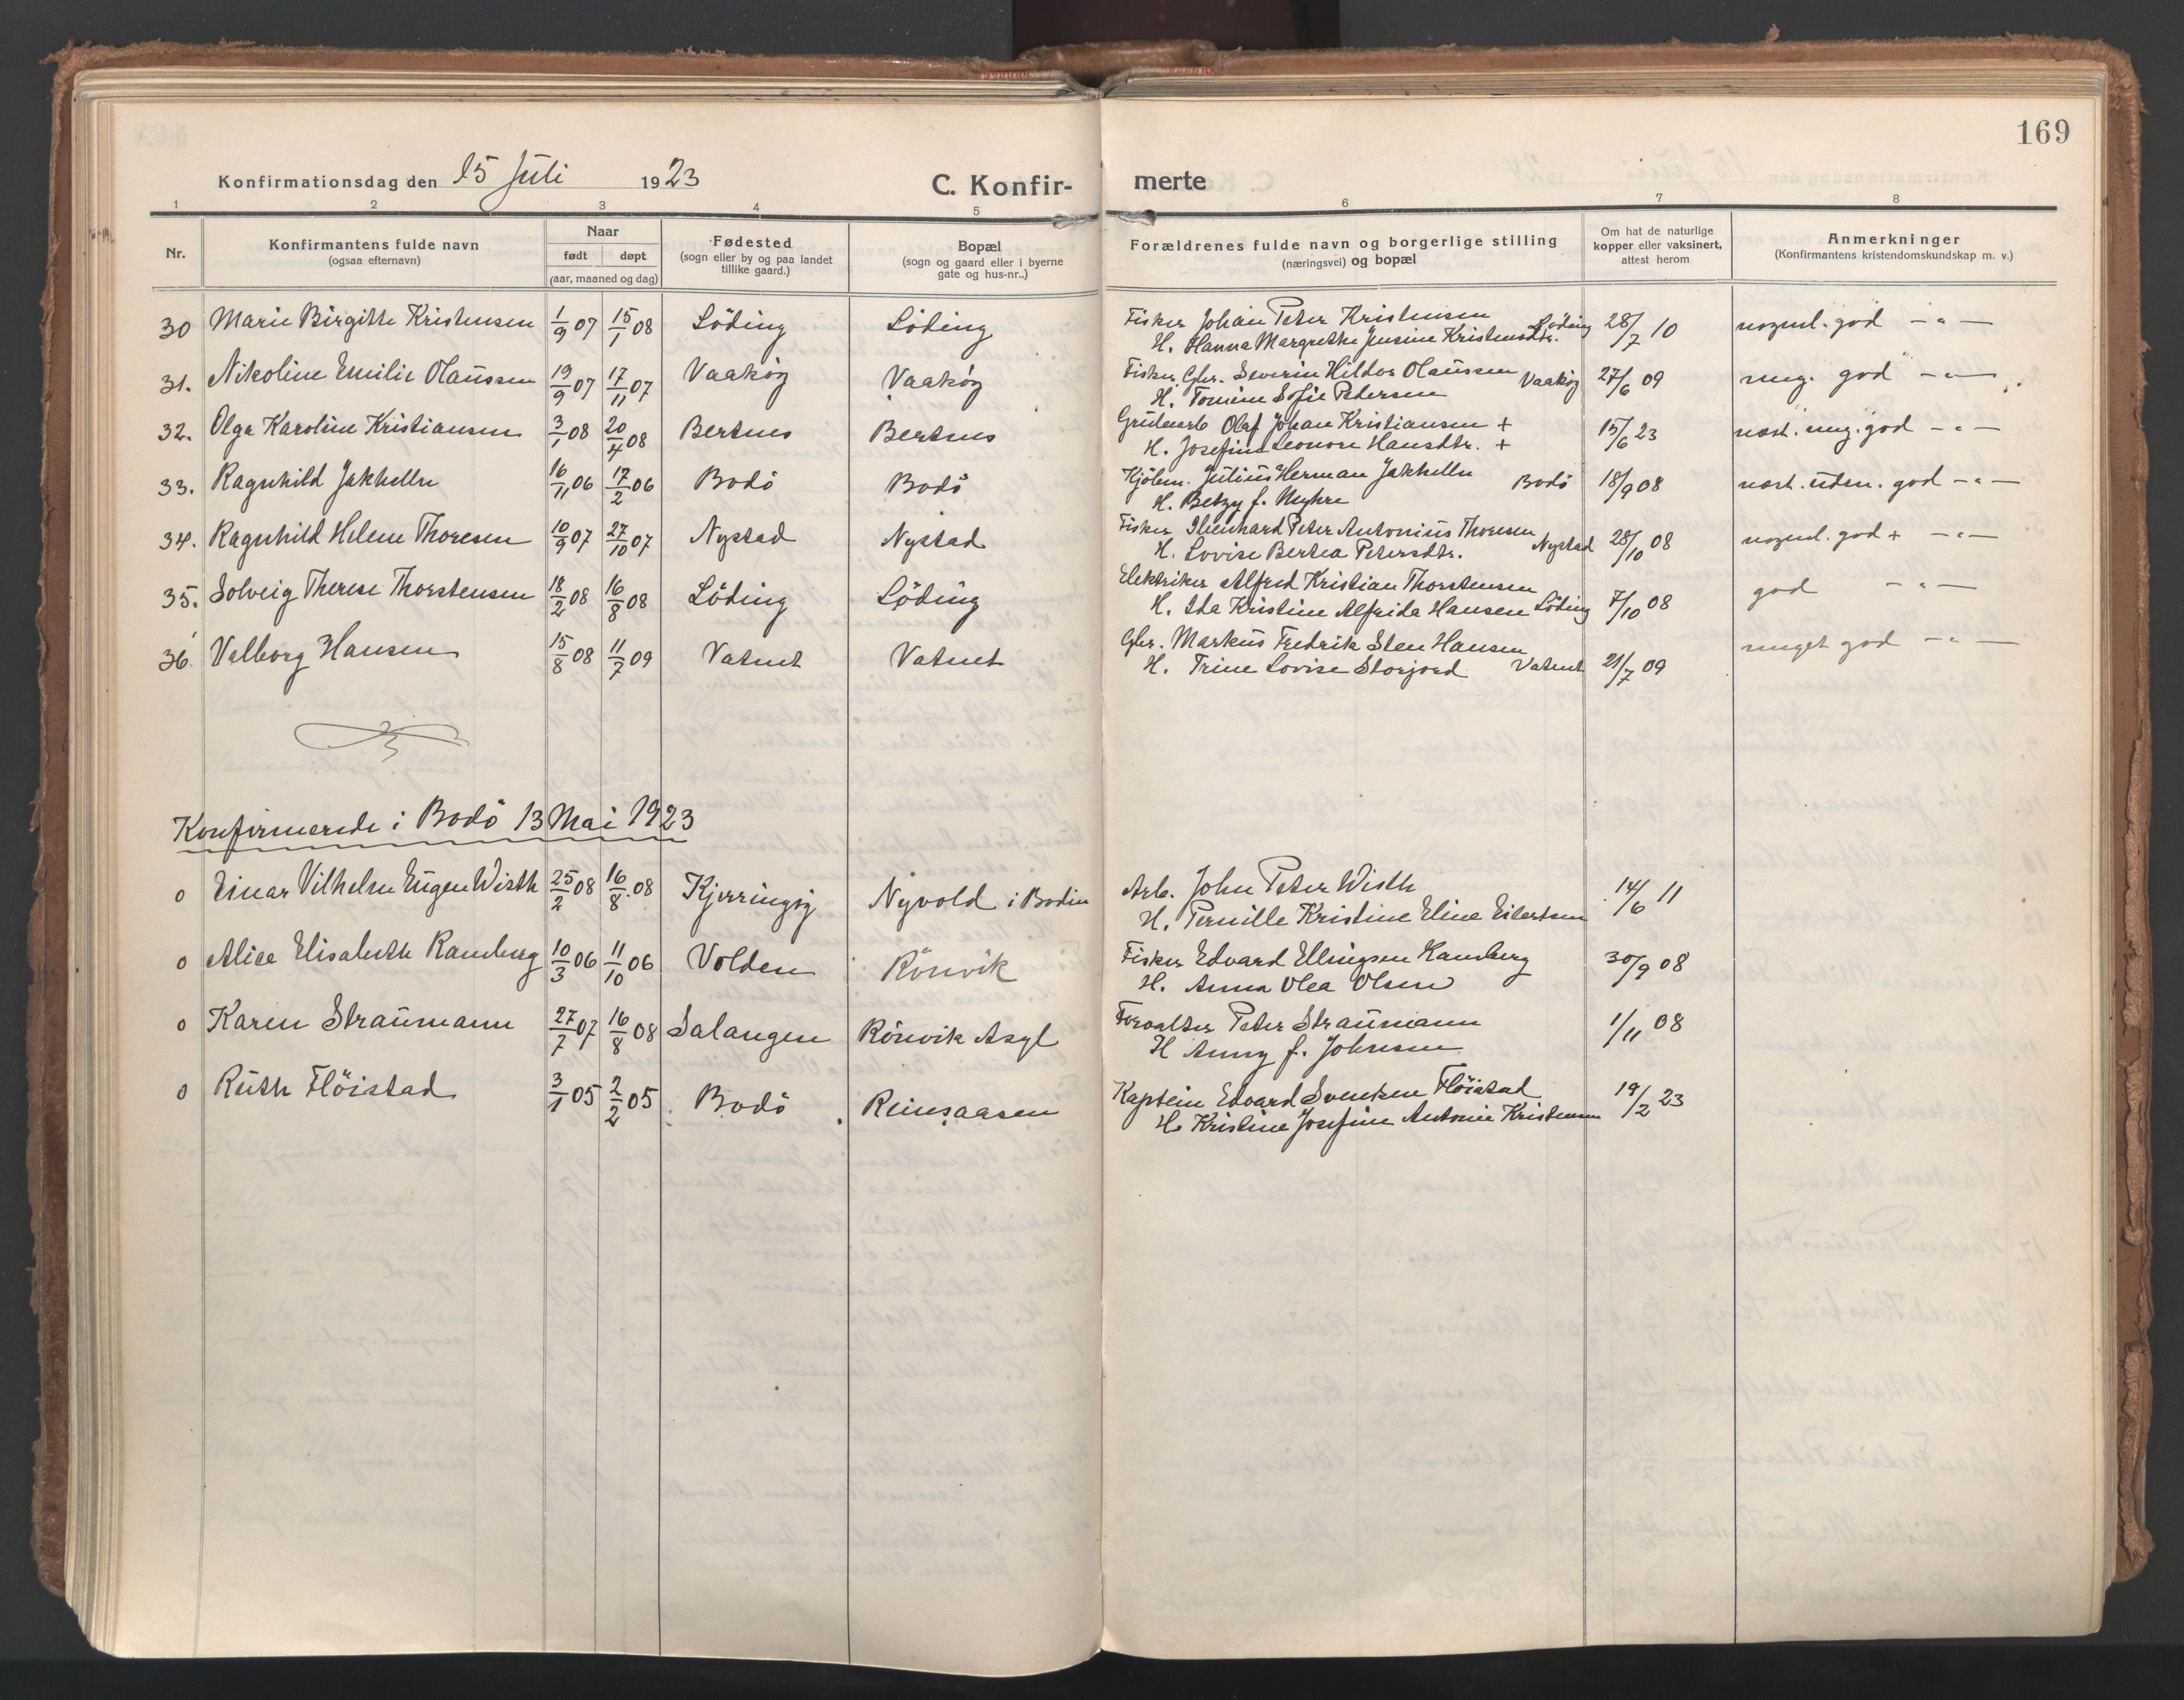 169
Konfirmationsdag den 15 Juli 1923 C. Konfir- merte
1 2 3 4 5 6 7 8
Nr. Konfirmantens fulde navn (ogsaa efternavn) Naar født døpt (aar, maaned og dag) Fødested (sogn eller by og paa landet tillike gaard.) Bopæl (sogn og gaard eller i byerne gate og hus-nr..) Forældrenes fulde navn og borgerlige stilling (næringsvei) og bopæl Om hat de naturlige kopper eller vaksinert, attest herom Anmerkninger (Konfirmantens kristendomskundskap m. v.)
30 Marie Birgitte Kristensen 1/9 07 15/1 08 Löding Löding Fisker Johan Peter Kristensen 28/7 10 nogenl. god — " —
H. Hanna Margrethe Jensine Kristensdtr. Löding
31. Nikoline Emilie Olaussen 19/9 07 17/11 07 Vaaköy Vaaköy Fisker, Gbr. Severin Hildor Olaussen Vaaköy 27/6 09 meg. god — " —
H. Tomine Sofie Petersen
32. Olga Karoline Kristiansen 3/1 08 20/4 08 Bertnes Bertnes Grubearb Olaf Johan Kristiansen + 15/6 23 næst. meg. god — " —
H. Josefine Leonore Hansdtr. +
33. Ragnhild Jakhelln 16/11 06 17/2 06 Bodö Bodö Kjöbm. Julius Herman Jakhelln Bodö 18/9 08 næst. uden. god — " —
H. Betzy f. Myhre
34. Ragnhild Helene Thoresen 10/9 07 27/10 07 Nystad Nystad Fisker Ihenhard Peter Antonius Thoresen 28/10 08 nogenl. god + — " —
H. Lovise Bertea Petersdtr. Nystad
35. Solveig Therese Thorstensen 18/2 08 16/8 08 Löding Löding Elektriker Alfred Kristian Thorstensen 7/10 08 god — " —
H. Ida Kristine Alfrida Hansen Löding
36. Valborg Hansen 15/8 08 11/7 09 Vatnet Vatnet Gbr. Markus Fredrik Sten Hansen 21/7 09 meget god — " —
H. Trine Lovise Storjord Vatnet
Konfirmerede i Bodö 13 Mai 1923
0 Einar Vilhelm Eugen Wisth 25/2 08 16/8 08 Kjerringöy Nyvold i Bodin Arb. John Peter Wisth 14/6 11
H. Pernille Kristine Eline Eilertsen
0 Alice Elisabeth Ramberg 10/3 06 11/10 06 Volden Rönvik Fisker Edvard Ellingsen Ramberg 30/9 08
H. Anna Olea Olsen
0 Karen Straumann 27/7 07 16/8 08 Salangen Rönvik Asyl Forvalter Peter Straumann 1/11 08
H Anny f. Johnsen
0 Ruth Flöistad 3/1 05 2/2 05 Bodö Reinsaasen Kaptein Edvard Svendsen Flöistad 19/2 23
H. Kristine Josefine Antonie Kristensen